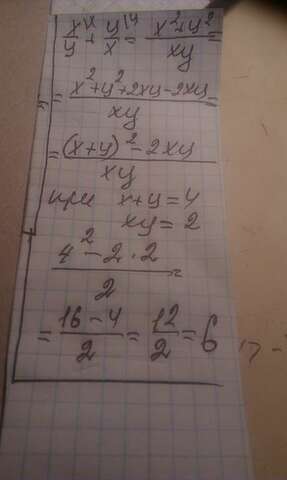 x/y + y/x = (x² + y²)/xy =
= (x² + y² + 2xy - 2xy)/xy =
= ((x+y)² - 2xy)/xy
при x+y = 4
xy = 2
(4² - 2 · 2)/2 =
= (16 - 4)/2 = 12/2 = 6